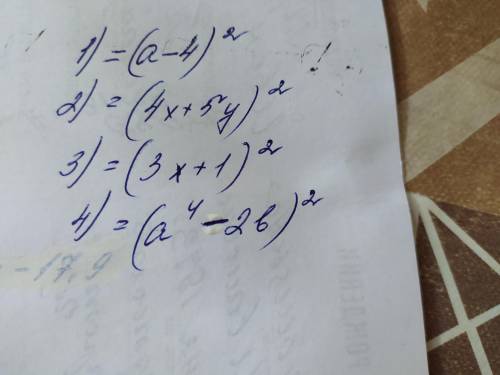 1) = (a-4)²
2) = (4x+5y)²
3) = (3x+1)²
4) = (a⁴-2b)²
-17,9
РОЖДЕНИ